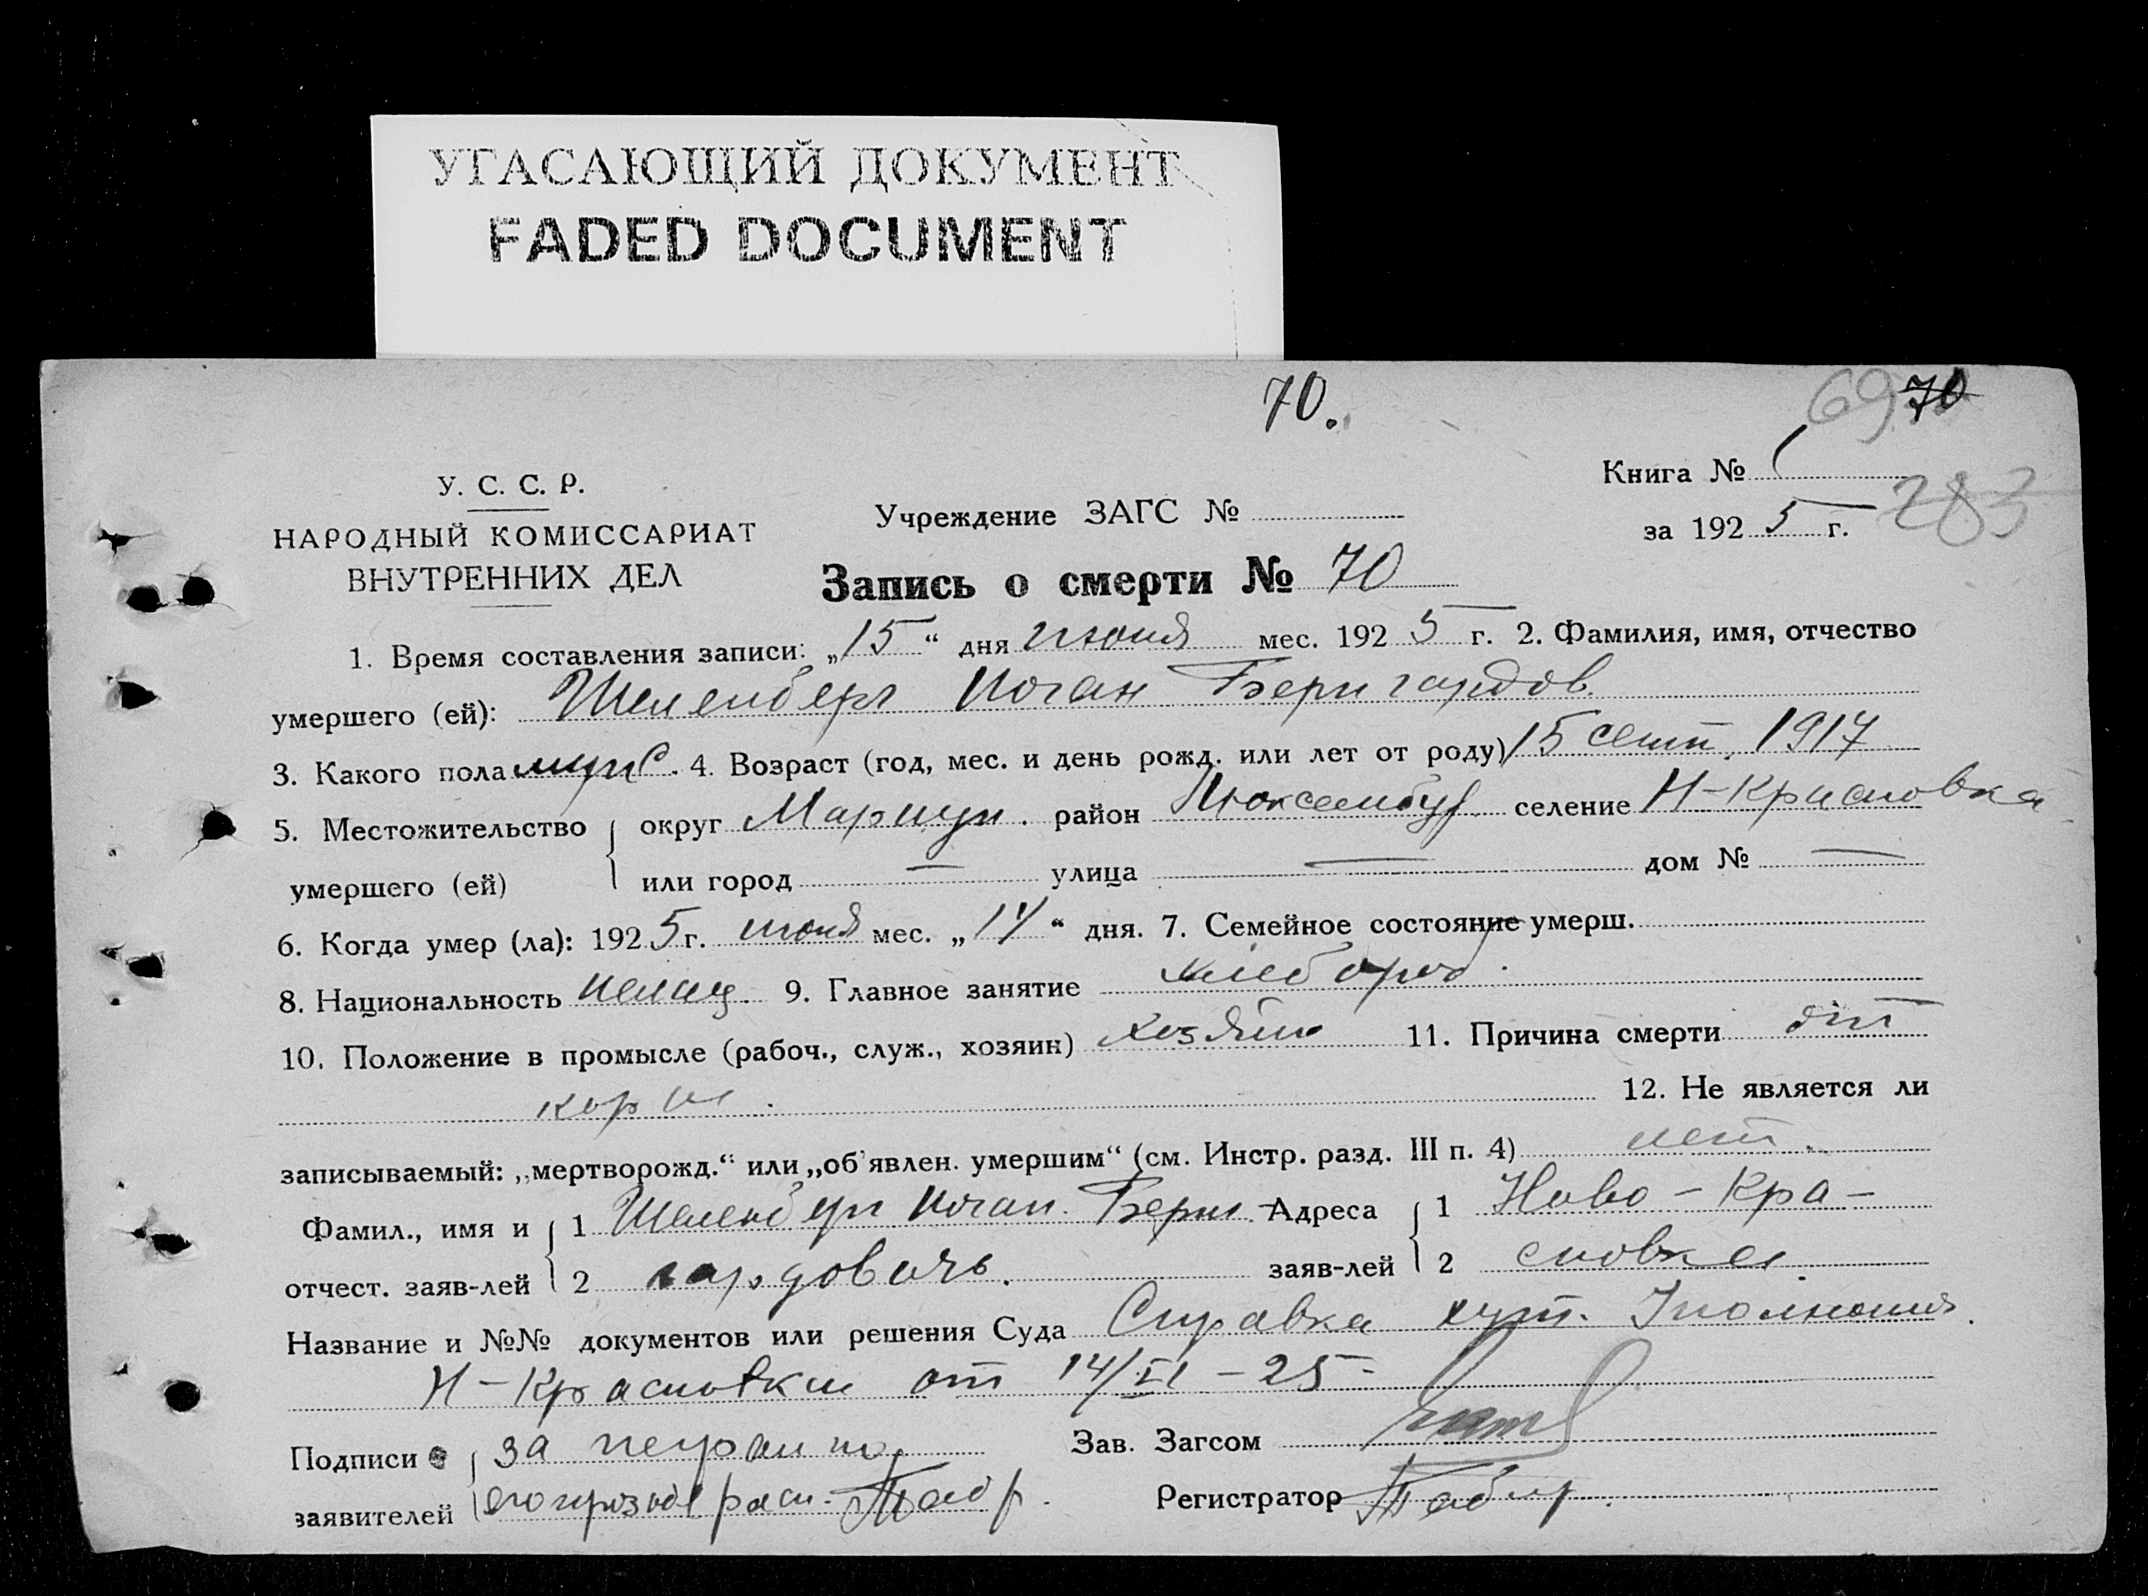 УГАСАЮЩИЙ ДОКУМЕНТ
FADED DOCUMENT
70.
69 70
У. С. С. Р.
НАРОДНЫЙ КОМИССАРИАТ
ВНУТРЕННИХ ДЕЛ
Учреждение ЗАГС №
Книга № 1
за 1925 г. 283
Запись о смерти № 70
1. Время составления записи: „15“ дня июня мес. 1925 г. 2. Фамилия, имя, отчество
умершего (ей): Шеленберг Иоган Бернгардов.
3. Какого пола мужс. 4. Возраст (год, мес. и день рожд. или лет от роду) 15 сент. 1917
5. Местожительство округ Мариуп. район Люксембур. селение Н-Красновка
умершего (ей) или город — улица — дом № —
6. Когда умер (ла): 1925 г. июня мес. „14“ дня. 7. Семейное состояние умерш.
8. Национальность немец. 9. Главное занятие хлебороб.
10. Положение в промысле (рабоч., служ., хозяин) хозяин 11. Причина смерти от
кори. 12. Не является ли
записываемый: „мертворожд.“ или „об'явлен. умершим“ (см. Инстр. разд. III п. 4) нет.
Фамил., имя и 1 Шеленберг Иоган. Берн- Адреса 1 Ново-Кра-
отчест. заяв-лей 2 гардовичь. заяв-лей 2 сновка.
Название и №№ документов или решения Суда Справка хут.
Н-Красновки от 14/VI-25-
Подписи за неграмт. Зав. Загсом
заявителей его прозьбе расп. Регистратор